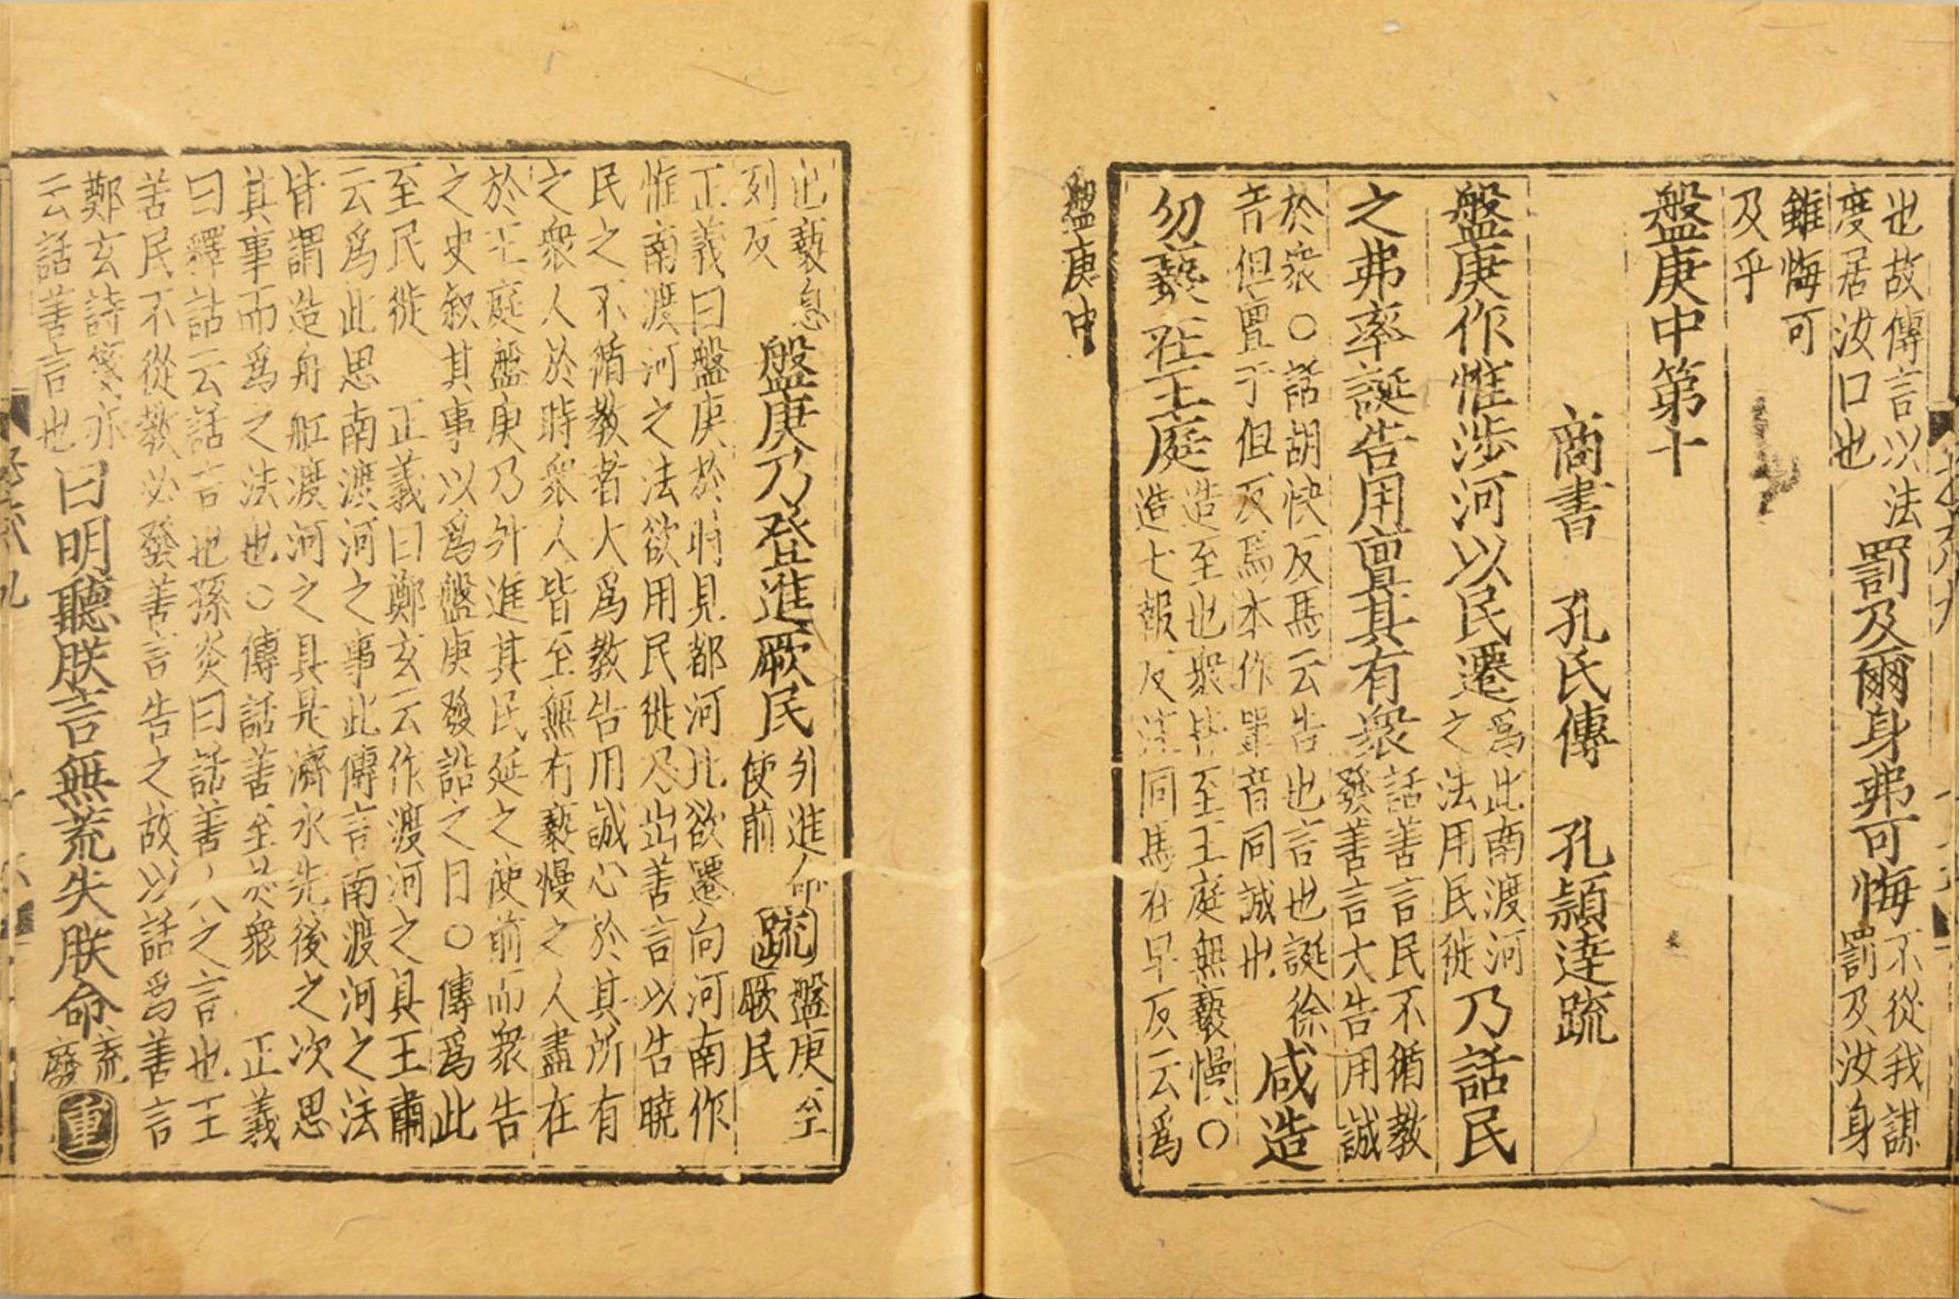 也故傳言以法
度居汝口也
罰及爾身弗可悔
不從我謀
罰及汝身
雖悔可
及乎
盤庚中第十
商書　孔氏傳　孔穎達疏
盤庚作惟涉河以民遷
爲此南渡河
之法用民徙
乃話民
之弗率誕告用亶其有衆
話善言民不循教
發善言大告用誠
於衆○話胡快反馬云告也言也誕徐
音但亶丁但反馬本作單音同誠也
咸造
勿褻在王庭
造至也衆皆至王庭無褻慢○
造七報反注同馬在早反云爲
盤庚中
也褻息
列反
盤庚乃登進厥民
升進命
使前
疏
盤庚至
厥民
正義曰盤庚於時見都河北欲遷向河南作
惟南渡河之法欲用民徙乃出善言以告曉
民之不循教者大爲教告用誠心於其所有
之衆人於時衆人皆至無有褻慢之人盡在
於王庭盤庚乃升進其民延之使前而衆告
之史叙其事以爲盤庚發誥之目○傳爲此
至民徙　正義曰鄭玄云作渡河之具王肅
云爲此思南渡河之事此傳言南渡河之法
皆謂造舟舡渡河之具是濟水先後之次思
其事而爲之法也○傳話善至於衆　正義
曰釋詁云話言也孫炎曰話善人之言也王
苦民不從教必發善言告之故以話爲善言
鄭玄詩箋亦
云話善言也
曰明聽朕言無荒失朕命
荒
廢
重